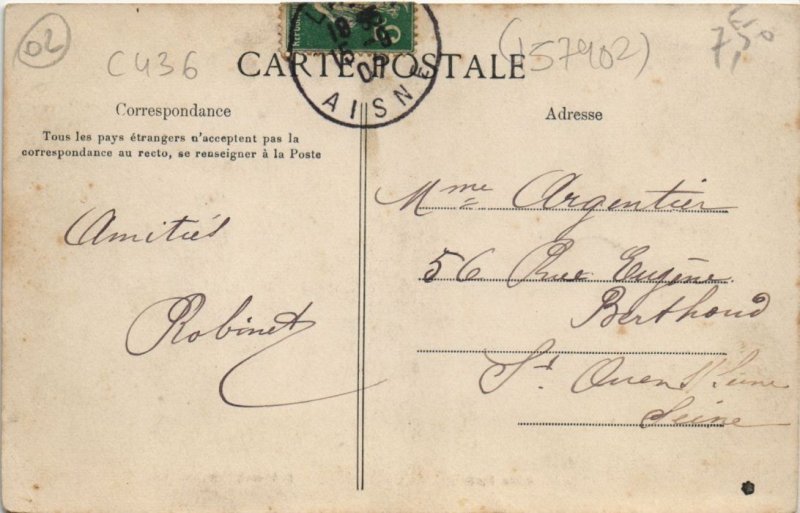 02
C436
(157902)
7,50
18
15
AISNE
CARTE POSTALE
Correspondance
Tous les pays étrangers n'acceptent pas la
correspondance au recto, se renseigner à la Poste
Amitiés
Robinet
Adresse
Mme Argentier
56 Rue Eugène
Berthoud
St Ouen s/ Seine
Seine